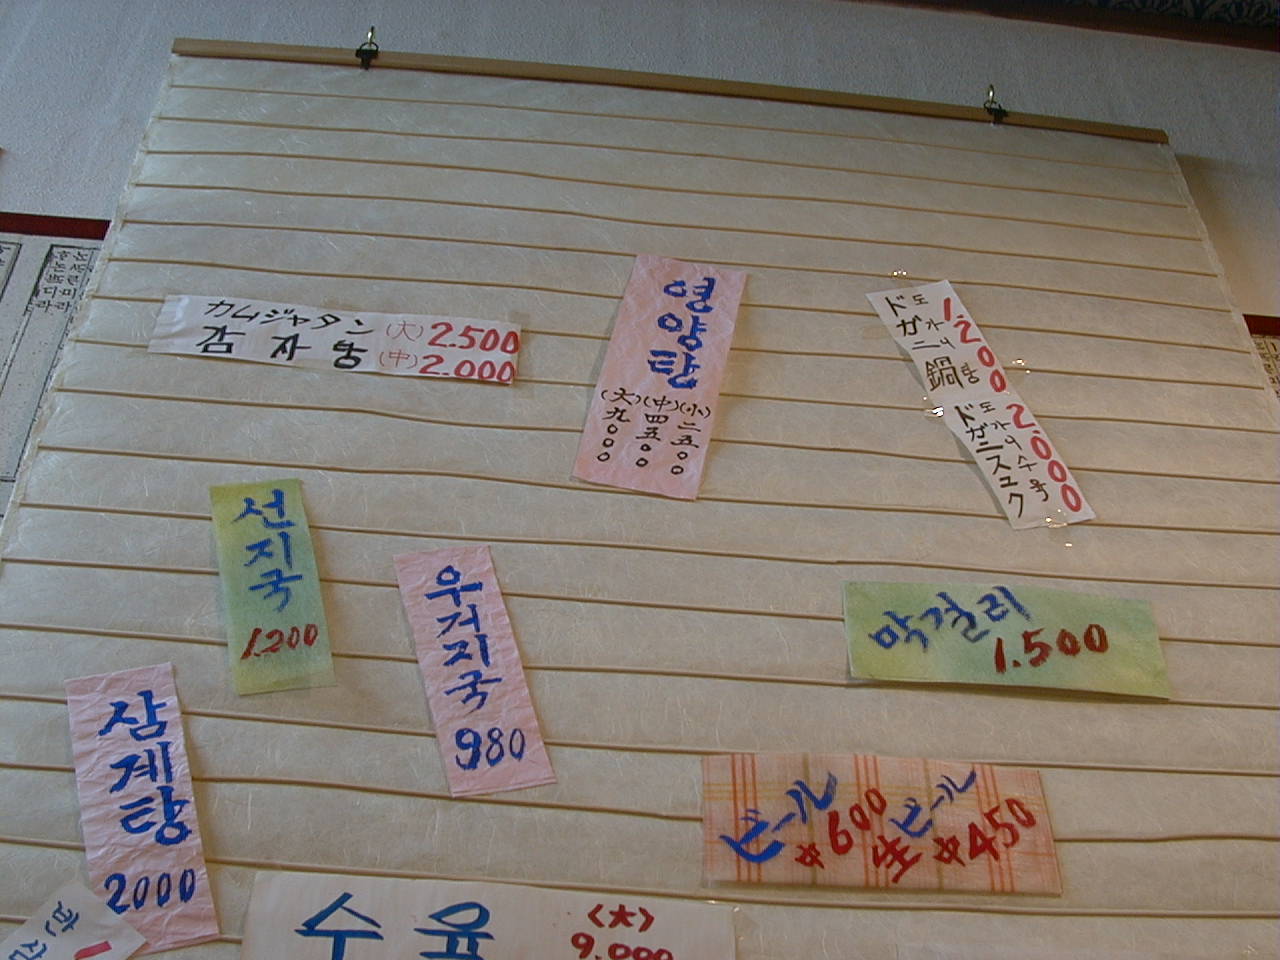 カムジャタン (大) 2.500
감자탕 (中) 2.000
영양탕
(大) (中) (小)
九〇〇〇
四五〇〇
二五〇〇
ドガニ鍋
도가니탕
1.200
ドガニスユク
도가니수육
2.000
선지국
1.200
우거지국
980
막걸리
1.500
삼계탕
2000
ビール
¥600
生ビール
¥450
수육 <大>
9.000